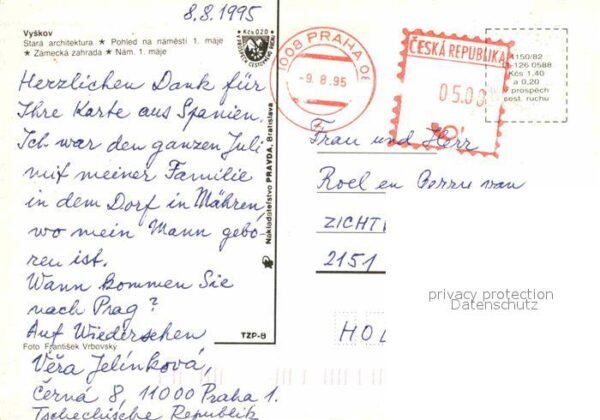 8.8.1995
Vyškov
Stará architektura ★ Pohled na náměstí 1. máje
★ Zámecká zahrada ★ Nám. 1. máje
Kčs 0,20
Herzlichen Dank für
Ihre Karte aus Spanien.
Ich war den ganzen Juli
mit meiner Familie
in dem Dorf in Mähren,
wo mein Mann gebo-
ren ist.
Wann kommen Sie
nach Prag?
Auf Wiedersehen
Foto František Vrbovský
TZP-8
Věra Jelínková,
Černá 8, 11000 Praha 1.
Tschechische Republik
Nakladateľstvo PRAVDA, Bratislava
1008 PRAHA 06
-9. 8. 95
ČESKÁ REPUBLIKA
05.00
150/82
-126 0588
Kčs 1,40
a 0,20
prospěch
cest. ruchu
Frau und Herr
Roel en Gerry van
ZICHT
2151
privacy protection
Datenschutz
HOL